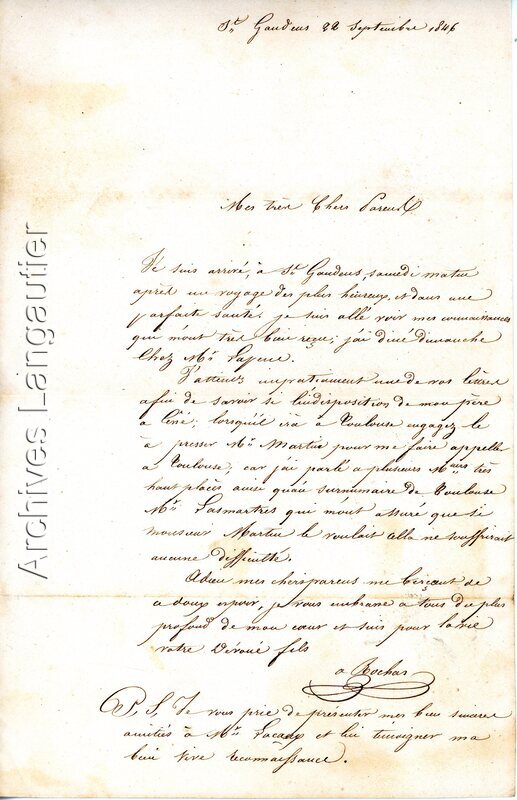 St Gaudens 22 Septembre 1846
Mes très Chers Parents
Je suis arrivé, à St Gaudens samedi matin
après un voyage des plus heureux, et dans une
parfaite santé. je suis allé voir mes connaissances
qui m'ont très bien reçu; j'ai diné dimanche
Chez Mr
J'attends impatiament une de vos lettres
afin de savoir si l'indisposition de mon père
à Céné; lorsqu'il ira à Toulouse engagez le
à presser Mr Martin pour me faire appeller
à Toulouse, car j'ai parlé a plusieurs Mrs très
haut placés ainsi qu'au surnumaire de Toulouse
Mr Lasmartres qui m'ont assuré que si
monsieur Martin le voulait cella ne souffrirait
aucune difficulté.
Adieu mes chers parens me berçant de
ce doux espoir, je vous embrasse à tous du plus
profond de mon cœur et suis pour la vie
votre Devoué fils
a Rochas
P. S. Je vous prie de présenter mes bien sincères
amitiés à Mr et lui témoigner ma
bien vive reconnaissance.
Archives Langautier